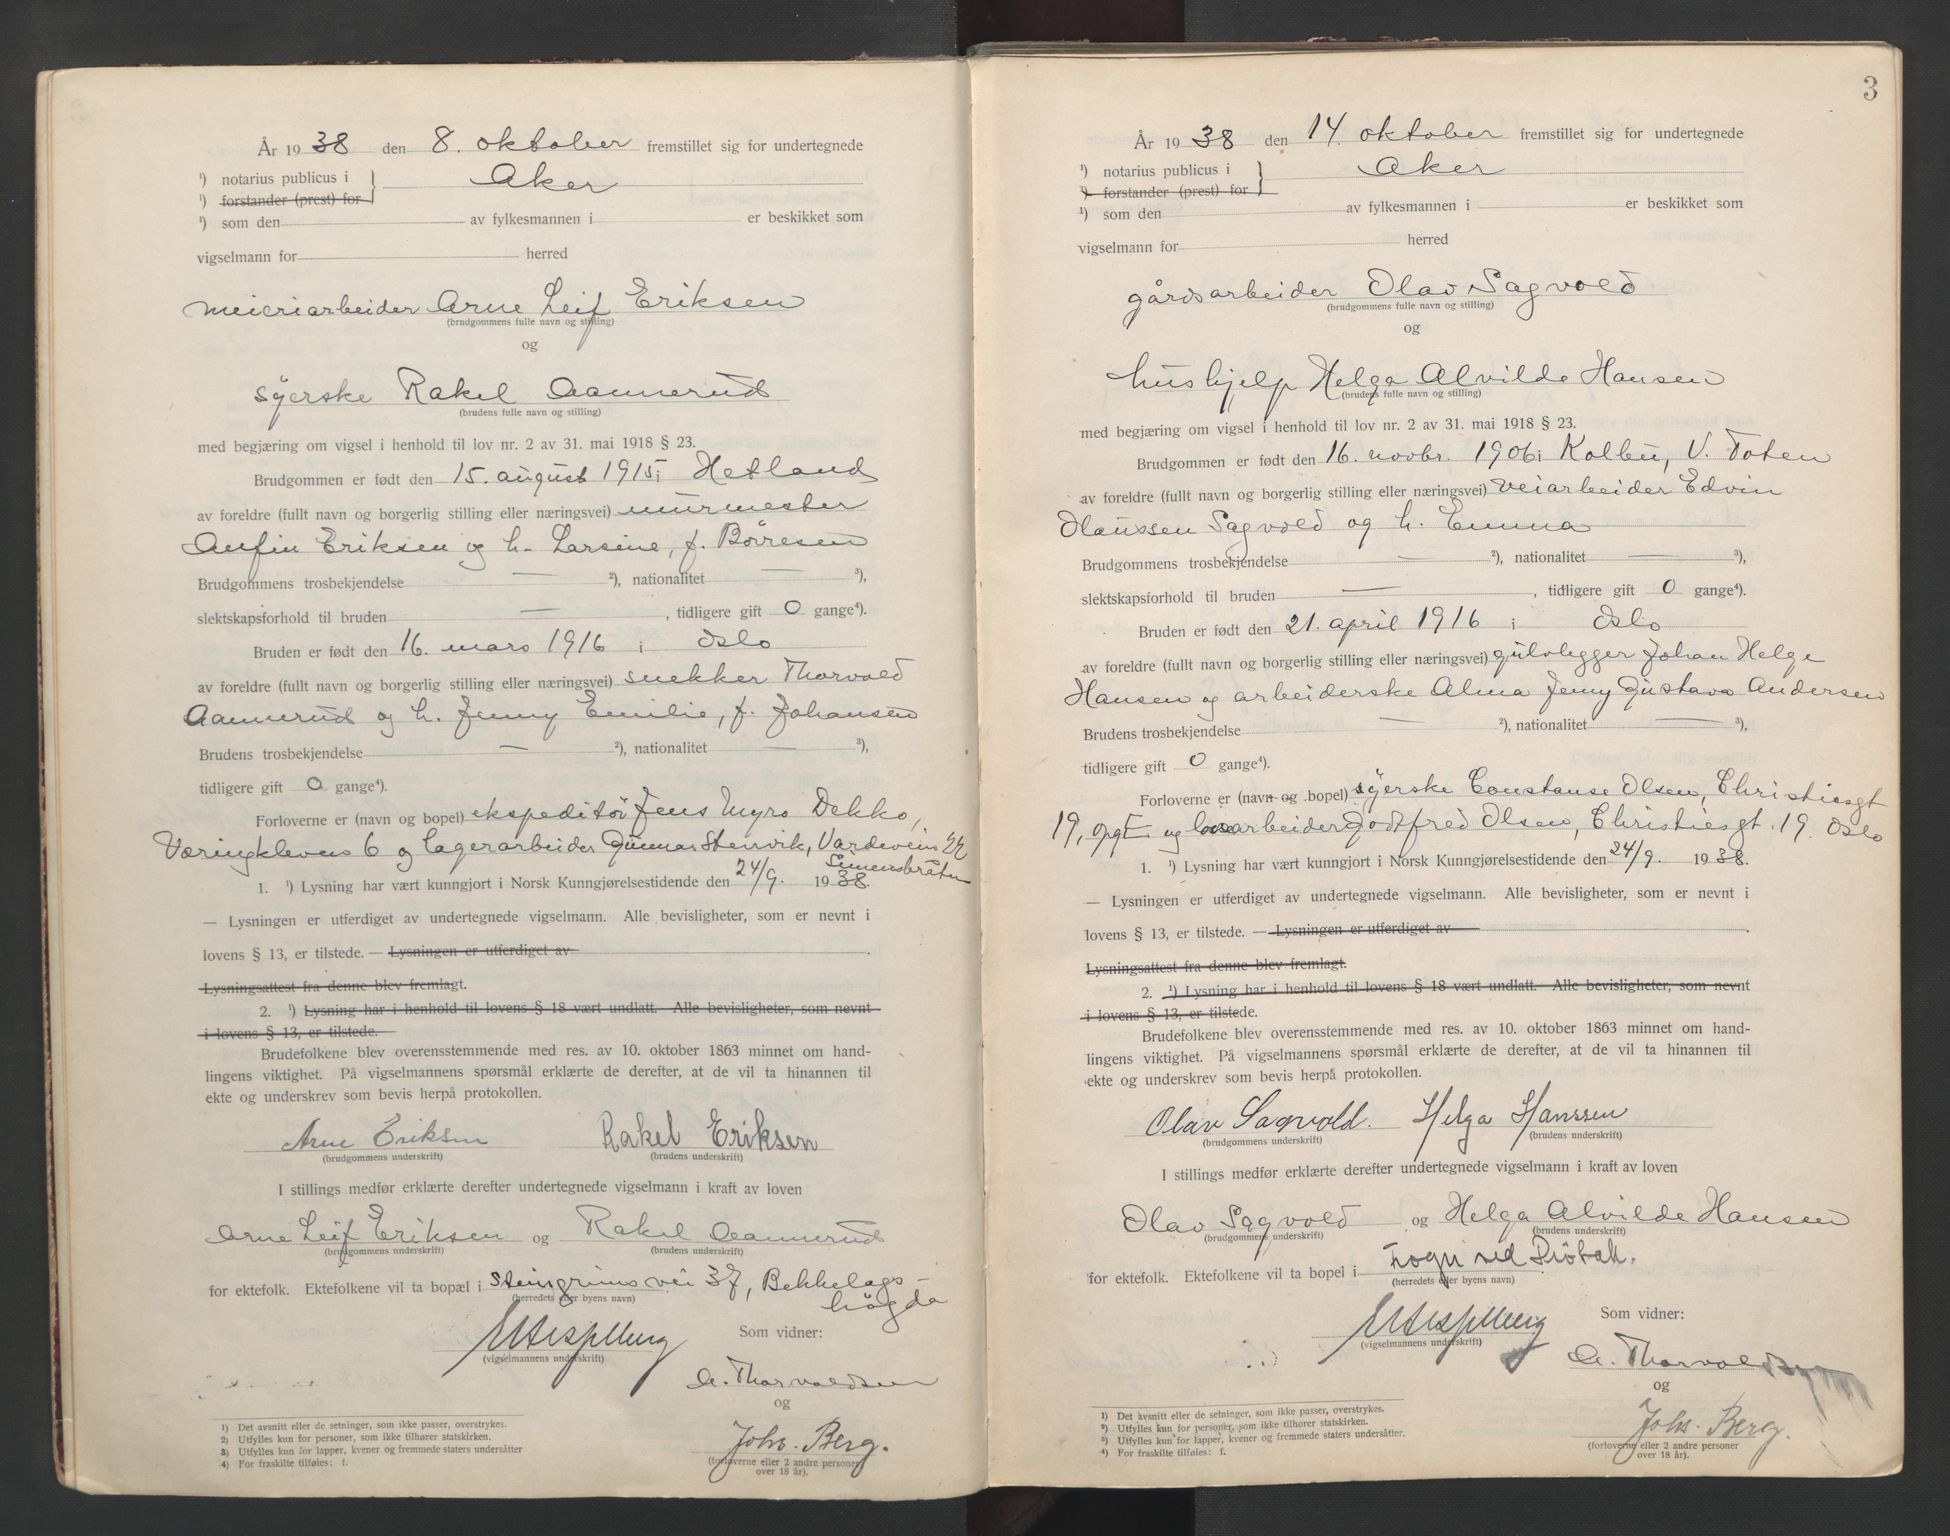 År 1938 den 8. oktober fremstillet sig for undertegnede
¹) notarius publicus i } Aker
¹) forstander (prest) for
¹) som den av fylkesmannen i er beskikket som
vigselmann for herred
meieriarbeider Arne Leif Eriksen
(brudgommens fulle navn og stilling)
og
syerske Rakel Aamerud
(brudens fulle navn og stilling)
med begjæring om vigsel i henhold til lov nr. 2 av 31. mai 1918 § 23.
Brudgommen er født den 15. august 1915 i Hetland
av foreldre (fullt navn og borgerlig stilling eller næringsvei) murmester
Anfin Eriksen og h. Larsine, f. Børresen
Brudgommens trosbekjendelse — ²), nationalitet — ³),
slektskapsforhold til bruden — , tidligere gift 0 gange⁴).
Bruden er født den 16. mars 1916 i Oslo
av foreldre (fullt navn og borgerlig stilling eller næringsvei) snekker Thorvald
Aamerud og h. Jenny Emilie, f. Johansen
Brudens trosbekjendelse — ²), nationalitet — ³),
tidligere gift 0 gange⁴).
Forloverne er (navn og bopel) ekspeditör Jens Myro Dekko,
Væringkleven 6 og lagerarbeider Gunnar Stenvik, Vardeveien 22
Simensbråten
1. ¹) Lysning har vært kunngjort i Norsk Kunngjørelsestidende den 24/9. 1938.
— Lysningen er utferdiget av undertegnede vigselmann. Alle bevisligheter, som er nevnt i
lovens § 13, er tilstede. — Lysningen er utferdiget av
Lysningsattest fra denne blev fremlagt.
2. ¹) Lysning har i henhold til lovens § 18 vært undlatt. Alle bevisligheter, som nevnt
i lovens § 13, er tilstede.
Brudefolkene blev overensstemmende med res. av 10. oktober 1863 minnet om hand-
lingens viktighet. På vigselmannens spørsmål erklærte de derefter, at de vil ta hinannen til
ekte og underskrev som bevis herpå protokollen.
Arne Eriksen Rakel Eriksen
(brudgommens underskrift) (brudens underskrift)
I stillings medfør erklærte derefter undertegnede vigselmann i kraft av loven
Arne Leif Eriksen og Rakel Aamerud
(brudgommens underskrift) (brudens underskrift)
for ektefolk. Ektefolkene vil ta bopæl i Steingrims vei 37, Bekkelags-
högda
(herredets eller byens navn)
Som vidner:
(vigselmannens underskrift)
A. Thorvaldsen
og
Johs. Berg.
(forloverne eller 2 andre personer
over 18 år).
1) Det avsnitt eller de setninger, som ikke passer, overstrykes.
2) Utfylles kun for personer, som ikke tilhører statskirken.
3) Utfylles kun for lapper, kvener og fremmede staters undersåtter
4) For fraskilte tilføies: f.
3
År 1938 den 14. oktober fremstillet sig for undertegnede
¹) notarius publicus i } Aker
¹) forstander (prest) for
¹) som den av fylkesmannen i er beskikket som
vigselmann for herred
gårdsarbeider Olav Sagvold
(brudgommens fulle navn og stilling)
og
hushjelp Helga Alvilde Hansen
(brudens fulle navn og stilling)
med begjæring om vigsel i henhold til lov nr. 2 av 31. mai 1918 § 23.
Brudgommen er født den 16. novbr. 1906 i Kolbu, V. Toten
av foreldre (fullt navn og borgerlig stilling eller næringsvei) veiarbeider Edvin
Olaussen Sagvold og h. Emma
Brudgommens trosbekjendelse — ²), nationalitet — ³),
slektskapsforhold til bruden — , tidligere gift 0 gange⁴).
Bruden er født den 21. april 1916 i Oslo
av foreldre (fullt navn og borgerlig stilling eller næringsvei) gulvlegger Johan Helge
Hansen og arbeiderske Alma Jenny Gustava Andersen
Brudens trosbekjendelse — ²), nationalitet — ³),
tidligere gift 0 gange⁴).
Forloverne er (navn og bopel) syerske Constanse Olsen, Christiesgt
19, opg I og arbeider Godtfred Olsen, Christiesgt. 19. Oslo
1. ¹) Lysning har vært kunngjort i Norsk Kunngjørelsestidende den 24/9. 1938.
— Lysningen er utferdiget av undertegnede vigselmann. Alle bevisligheter, som er nevnt i
lovens § 13, er tilstede. — Lysningen er utferdiget av .
Lysningsattest fra denne blev fremlagt.
2. ¹) Lysning har i henhold til lovens § 18 vært undlatt. Alle bevisligheter, som nevnt
i lovens § 13, er tilstede.
Brudefolkene blev overensstemmende med res. av 10. oktober 1863 minnet om hand-
lingens viktighet. På vigselmannens spørsmål erklærte de derefter, at de vil ta hinannen til
ekte og underskrev som bevis herpå protokollen.
Olav Sagvold. Helga Hanssen
(brudgommens underskrift) (brudens underskrift)
I stillings medfør erklærte derefter undertegnede vigselmann i kraft av loven
Olav Sagvold og Helga Alvilde Hansen
(brudgommens underskrift) (brudens underskrift)
for ektefolk. Ektefolkene vil ta bopel i Frogn ved Dröbak.
(herredets eller byens navn)
Som vidner:
(vigselmannens underskrift)
A. Thorvaldsen
og
Johs. Berg.
(forloverne eller 2 andre personer
over 18 år).
1) Det avsnitt eller de setninger, som ikke passer, overstrykes.
2) Utfylles kun for personer, som ikke tilhører statskirken.
3) Utfylles kun for lapper, kvener og fremmede staters undersåtter.
4) For fraskilte tilføies: f.